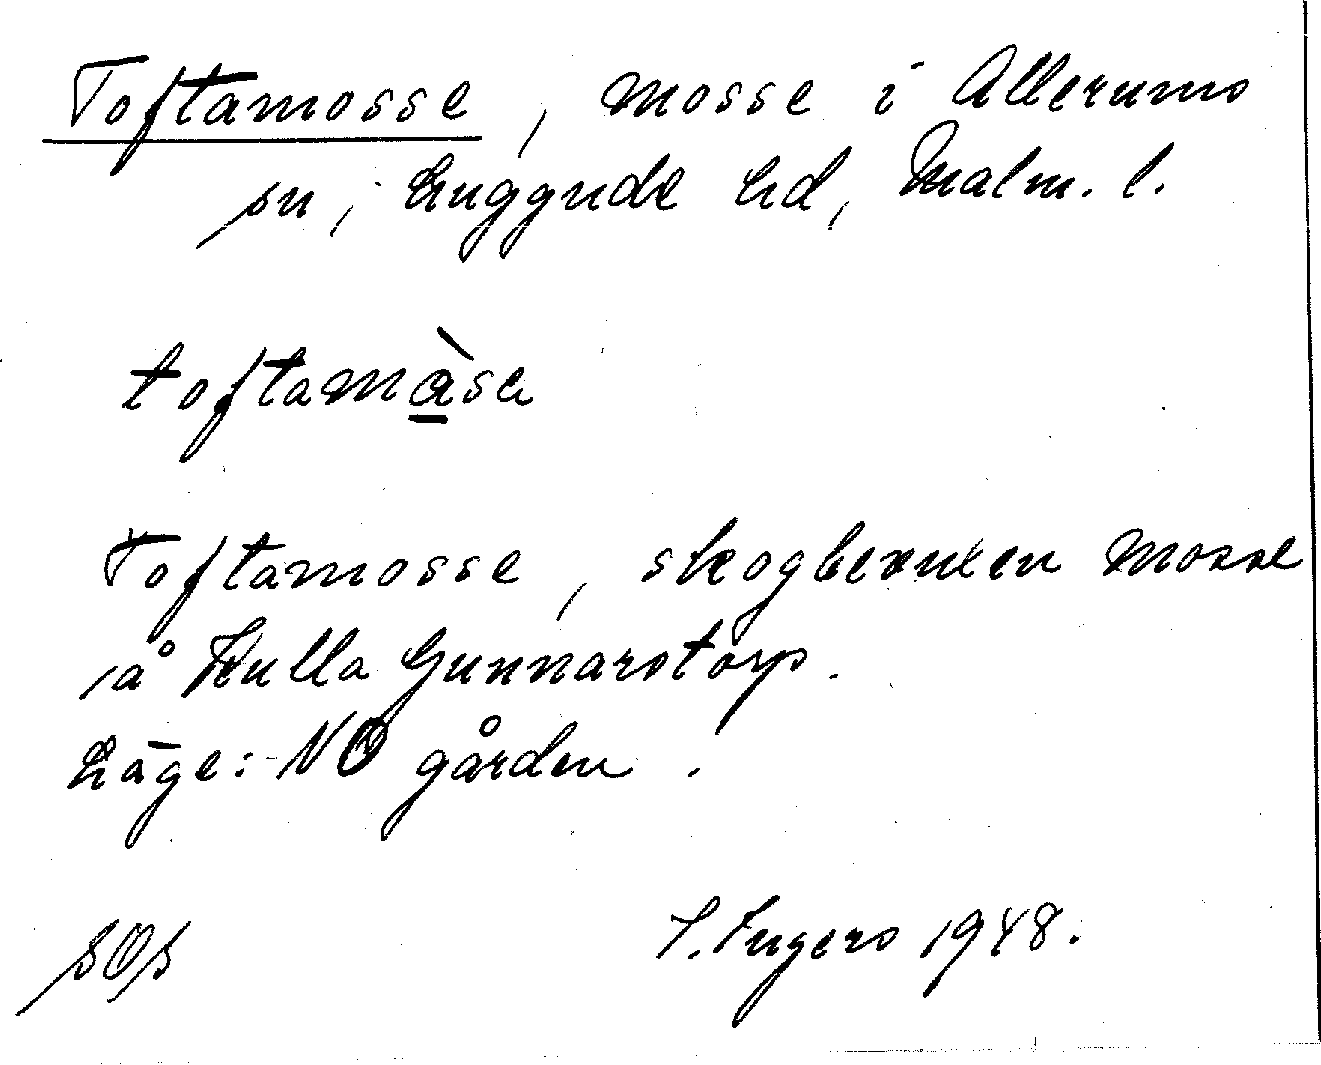 Toftamosse, mosse i Allerums
sn, Luggude hd, Malm. l.
toftamàse
Toftamosse, skogbevuxen mosse
på Kulla Gunnarstorp.
Läge: NO gården.
sOs I. Ingers 1948.